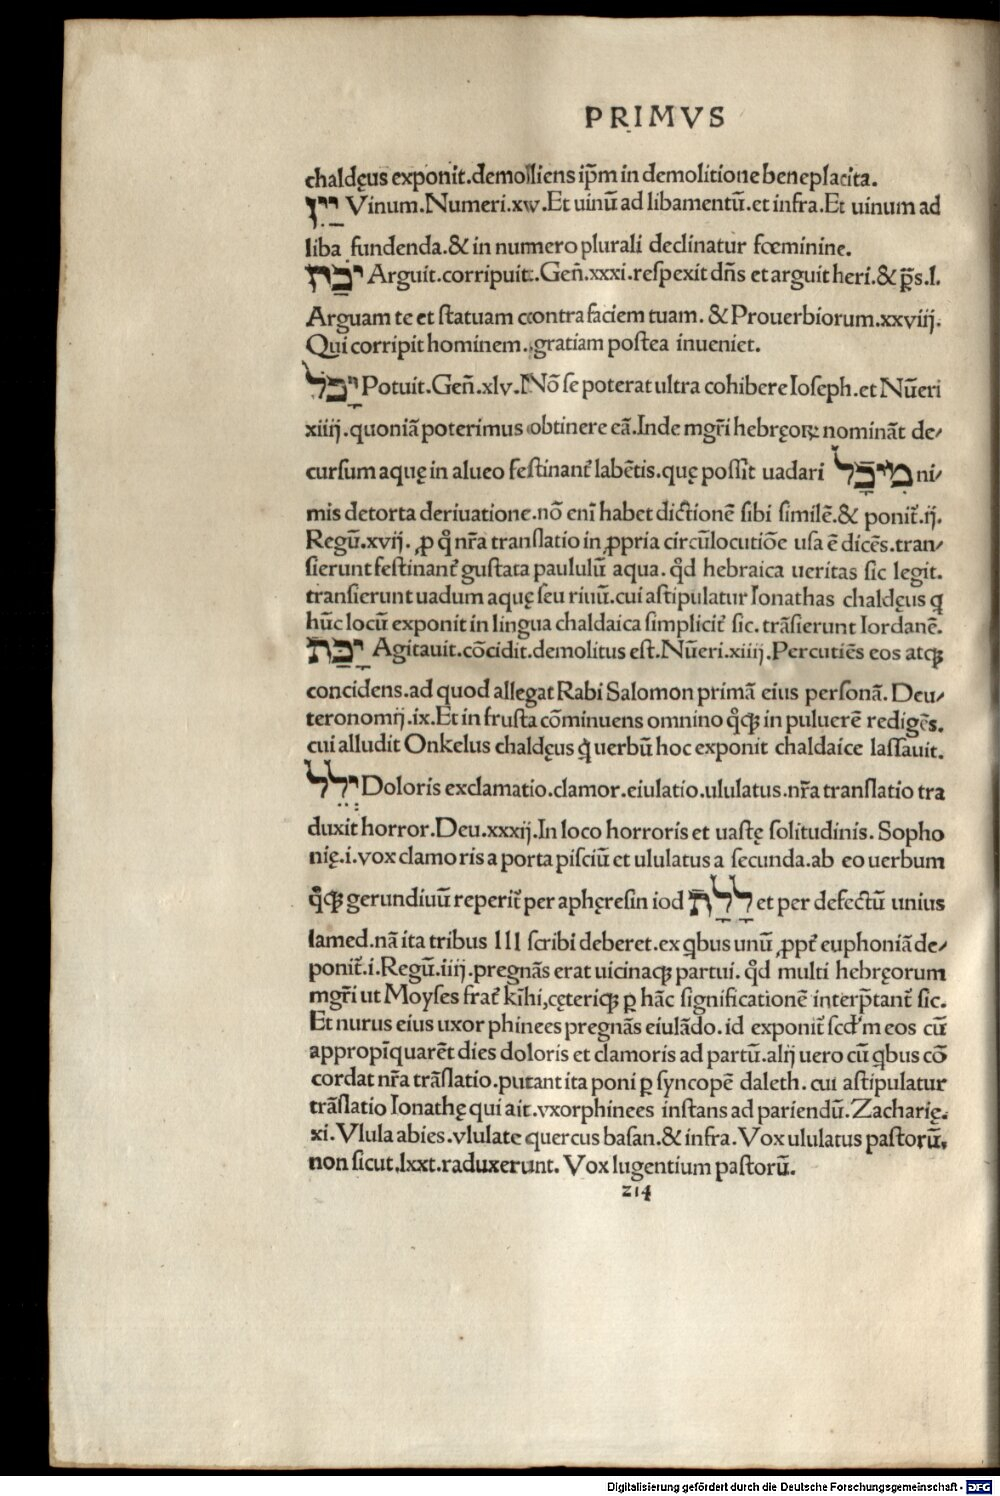 PRIMVS
chaldęus exponit.demolliens ip̃m in demolitione beneplacita.
יַיִן Vinum.Numeri.xw.Et uinũ ad libamentũ.et infra.Et uinum ad
liba fundenda.& in numero plurali declinatur fœminine.
Arguit.corripuit.Geñ.xxxi.respexit dñs et arguit heri.& p̃s.l.
Arguam te et statuam ccontra faciem tuam. & Prouerbiorum.xxviij.
Qui corripit hominem.,gratiam postea inueniet.
יָכַל Potuit.Geñ.xlv.Nõ se poterat ultra cohibere Ioseph.et Nũeri
xiiij.quoniã poterimus obtinere eã.Inde mgr̃i hebręoꝝ nominãt de/
cursum aquę in alueo festinant̃ labẽtis.quę possit uadari מִיכַל ni/
mis detorta deriuatione.nõ enĩ habet dictionẽ sibi similẽ.& ponit̃.ij.
Regũ.xvij. ꝓ q̃ nr̃a translatio in ꝓpria circũlocutiõe usa ẽ dicẽs.tran/
sierunt festinant̃ gustata paululũ aqua. qd̃ hebraica ueritas sic legit.
transierunt uadum aquę seu riuũ.cui astipulatur Ionathas chaldęus q
hũc locũ exponit in lingua chaldaica simplicit̃ sic. trãsierunt Iordanẽ.
יָכַת Agitauit.cõcidit.demolitus est.Nũeri.xiiij.Percutiẽs eos atqꝫ
concidens.ad quod allegat Rabi Salomon primã eius personã. Deu/
teronomij.ix.Et in frusta cõminuens omnino q̃qꝫ in puluerẽ redigẽs.
cui alludit Onkelus chaldęus q̃ uerbũ hoc exponit chaldaice lassauit.
יְלֵל Doloris exclamatio.clamor.eiulatio.ululatus.nr̃a translatio tra
duxit horror.Deu.xxxij.In loco horroris et uastę solitudinis. Sopho
nię.i.vox clamoris a porta pisciũ et ululatus a secunda.ab eo uerbum
q̃qꝫ gerundiuũ reperit̃ per aphęresin iod לַלַת et per defectũ unius
lamed.nã ita tribus lll scribi deberet.ex qbus unũ ꝓpt̃ euphoniã de/
ponit̃.i.Regũ.iiij.pregnãs erat uicinaqꝫ partui. qd̃ multi hebręorum
mgr̃i ut Moyses frat̃ kĩhi,cęteriqꝫ ꝑ hãc significationẽ interp̃tant̃ sic.
Et nurus eius uxor phinees pregnãs eiulãdo.id exponit̃ scd̃m eos cũ
appropĩquarẽt dies doloris et clamoris ad partũ.alij uero cũ qbus cõ
cordat nr̃a trãslatio.putant ita poni ꝑ syncopẽ daleth. cui astipulatur
trãslatio Ionathę qui ait.vxorphinees instans ad pariendũ.Zacharię.
xi.Vlula abies.vlulate quercus basan.& infra.Vox ululatus pastorũ,
non sicut.lxxt.raduxerunt. Vox lugentium pastorũ.
214
Digitalisierung gefördert durch die Deutsche Forschungsgemeinschaft - DFG